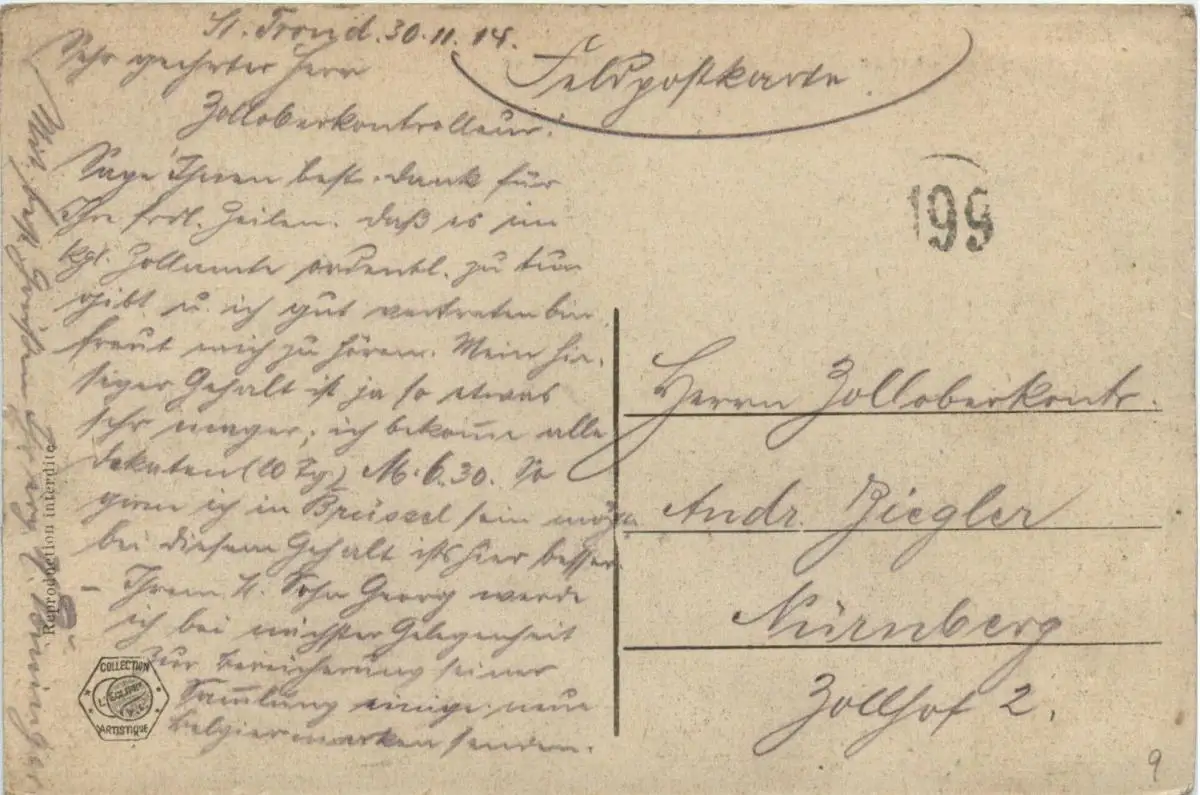 St. Trond. 30.11.14.
Feldpostkarte.
Sehr geehrter Herr
Zolloberkontrolleur!
Sage Ihnen best. Dank für
Ihre frdl. Zeilen. Daß es im
kgl. Zollamte ordentl. zu tun
gibt u. ich gut vertreten bin,
freut mich zu hören. Mein hie-
siger Gehalt ist ja so etwas
sehr mager; ich bekomme alle
Dekaten (10 Tg) M. 6.30. So
gern ich in Brüssel sein möchte
bei diesem Gehalt ists hier besser.
- Ihrem H. Sohn Georg werde
ich bei nächster Gelegenheit
zur Bereicherung seiner
Sammlung einige neue
Belgiermarken senden.
Mit best. Grüßen
199
Herrn Zolloberkontr.
Andr. Ziegler
Nürnberg
Zollhof 2.
Reproduction interdite
COLLECTION
ARTISTIQUE
9